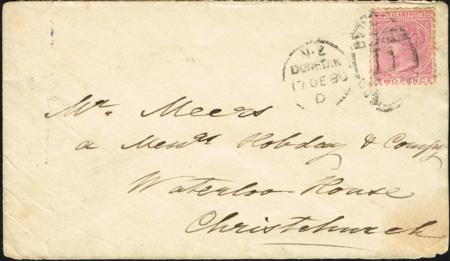 N.Z
DUNEDIN
17 DE 80
D
TWO PENCE
Mr. Meers
a Messrs Hobday & Compy
Waterloo House
Christchurch